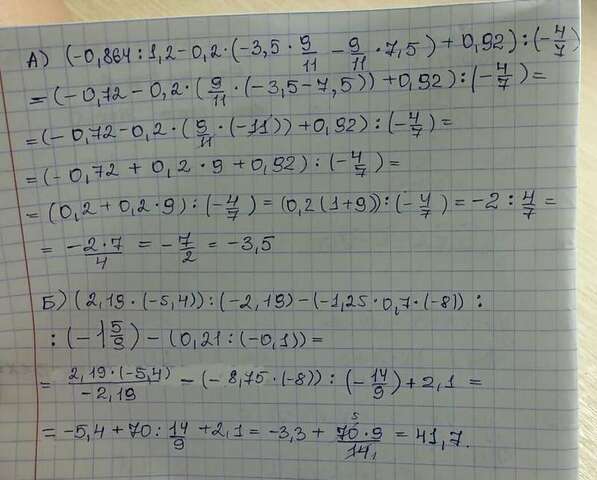 А) (-0,864:1,2-0,2·(-3,5·9/11-9/11·7,5)+0,92):(-4/7)
=(-0,72-0,2·(9/11·(-3,5-7,5))+0,92):(-4/7)=
=(-0,72-0,2·(9/11·(-11))+0,92):(-4/7)=
=(-0,72+0,2·9+0,92):(-4/7)=
=(0,2+0,2·9):(-4/7)=(0,2(1+9)):(-4/7)=-2:4/7=
=-2·7/4=-7/2=-3,5
Б) (2,19·(-5,4)):(-2,19)-(-1,25·0,7·(-8)):
:(-1 5/9)-(0,21:(-0,1))=
=2,19·(-5,4)/-2,19-(-8,75·(-8)):(-14/9)+2,1=
=-5,4+70:14/9+2,1=-3,3+5 70·9/14 1=41,7.